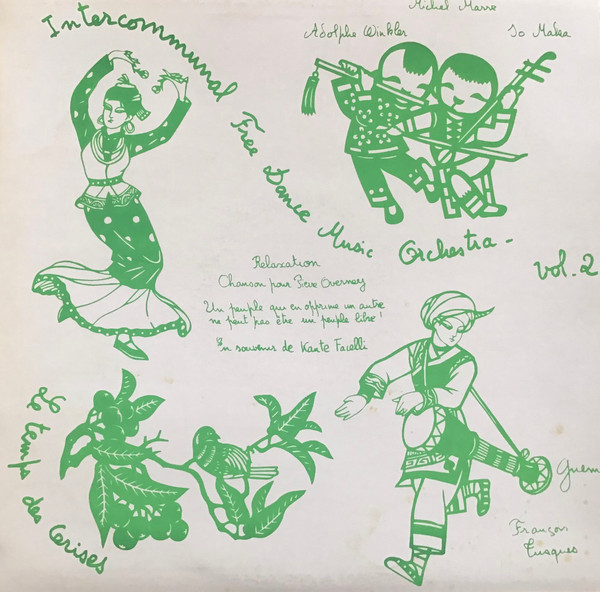 Intercommunal Free Dance Music Orchestra -
vol. 2
Michel Marre
Adolphe Winkler
Jo Maka
Relaxation
Chanson pour Pierre Overney
Un peuple qui en opprime un autre
ne peut pas être un peuple libre !
En souvenir de Kante Facelli
Le temps des Cerises
Guem
François
Tusques